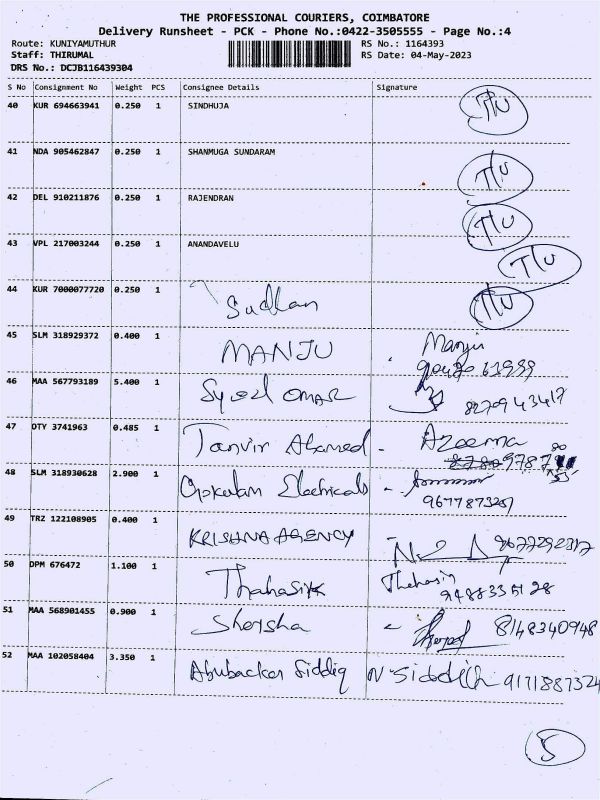 THE PROFESSIONAL COURIERS, COIMBATORE
Delivery Runsheet - PCK - Phone No.:0422-3505555 - Page No.:4
Route: KUNIYAMUTHUR RS No.: 1164393
Staff: THIRUMAL RS Date: 04-May-2023
DRS No.: DCJB116439304
S No Consignment No Weight PCS Consignee Details Signature
40 KUR 694663941 0.250 1 SINDHUJA T/U
41 NDA 905462847 0.250 1 SHANMUGA SUNDARAM T/U
42 DEL 910211876 0.250 1 RAJENDRAN T/U
43 VPL 217003244 0.250 1 ANANDAVELU T/U
44 KUR 7000077720 0.250 1 Sudhan T/U
45 SLM 318929372 0.400 1 MANJU Manju
46 MAA 567793189 5.400 1 Syed OMAR 8270943417
47 OTY 3741963 0.485 1 Tanvir Ahamed - Azeema
48 SLM 318930628 2.900 1 Electricals - 9677873207
49 TRZ 122108905 0.400 1 KRISHNA AGENCY
50 DPM 676472 1.100 1 Thahasik 9488335128
51 MAA 568901455 0.900 1 8148340948
52 MAA 102058404 3.350 1 Abubacker Siddiq N. Siddich 9171887324
5